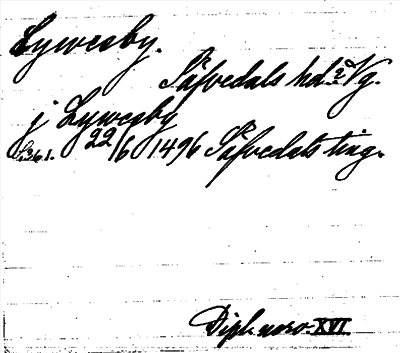 Lywesby.
Säfvedals hd. Vg.
j Lywesby
22/6 1496 Säfvedals ting.
Dipl. norv. XVI